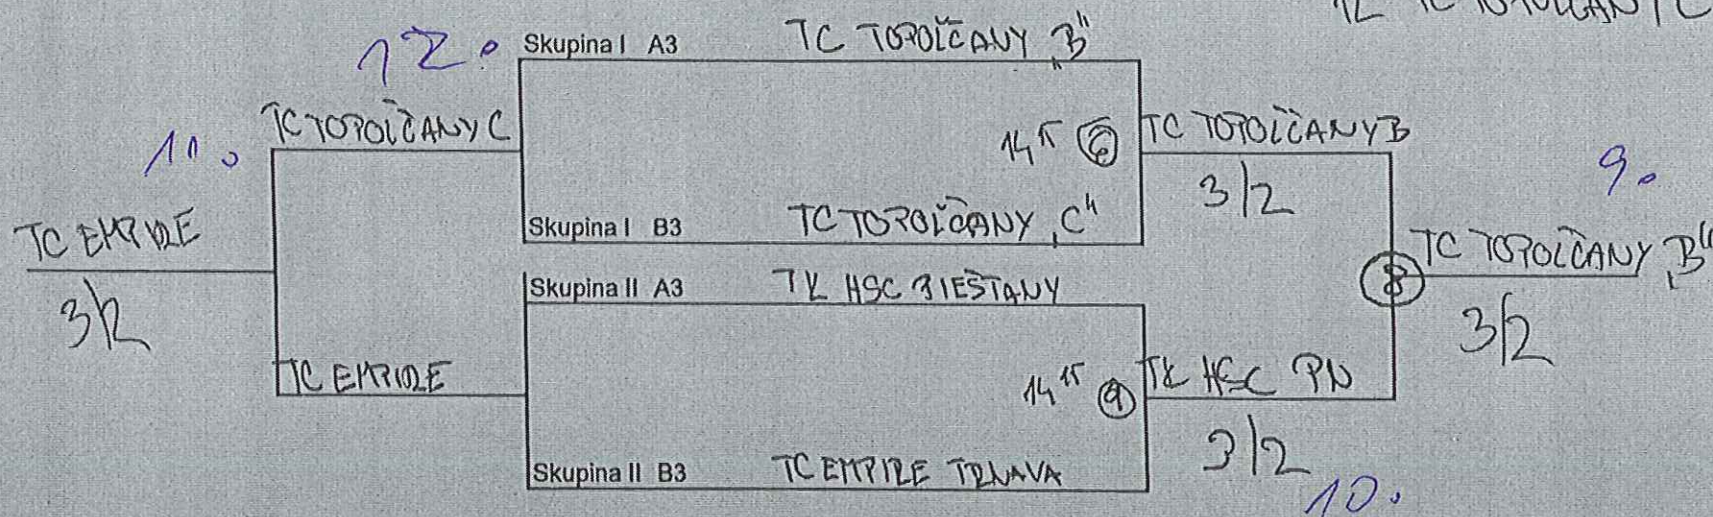 12 TC TOPOĽČANY C
12.
Skupina I A3 TC TOPOĽČANY „B"
TC TOPOĽČANY C
14 15 6 TC TOPOĽČANY B
11.
3/2
9.
TC EMPIRE
Skupina I B3 TC TOPOĽČANY „C"
TC TOPOĽČANY „B"
3/2
8
3/2
Skupina II A3 TK HSC PIEŠŤANY
TC EMPIRE
14 15 9 TK HSC PN
3/2
Skupina II B3 TC EMPIRE TRNAVA
10.